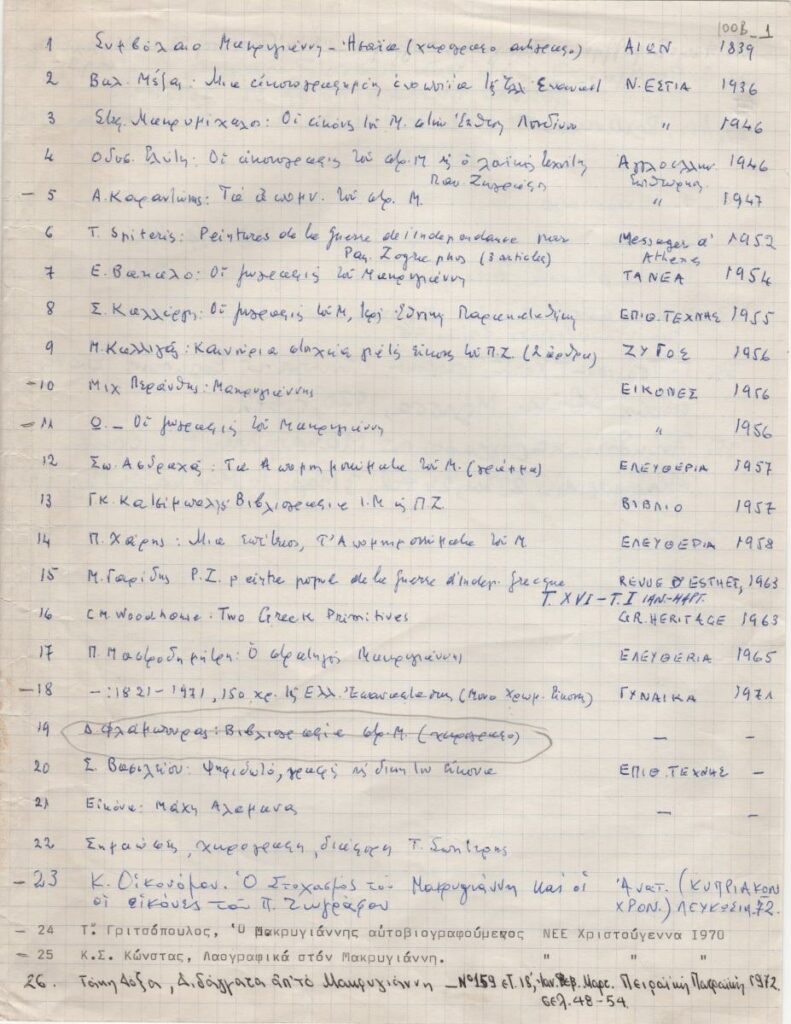 100B_1
1 Συμβόλαιο Μακρυγιάννη - Ησαΐα (χειρόγραφο αντίγραφο) ΑΙΩΝ 1839
2 Βαλ. Μέξας: Μια εἰκονογραφημένη ἐποποιία τῆς Ἑλλ. Επαναστ Ν. ΕΣΤΙΑ 1936
3 Στεφ. Μακρυμίχαλος: Οἱ εἰκόνες τοῦ Μ. στὴν Ἔκθεση Λονδίνου " 1946
4 Οδυσ. Ελύτη: Οἱ εἰκονογραφίες τοῦ στρ. Μ κι ὁ λαϊκός τεχνίτης Ἀγγλοελλην. 1946
Παν. Ζωγράφος Ἐπιθεώρηση
- 5 Α. Καραντώνης: Τὰ Ἀπομν. τοῦ στρ. Μ. " 1947
6 T. Spiteris: Peintures de la Guerre de l'Independance par Messager d' 1952
Pan. Zographos (3 articles) Athens
7 Ε. Βακαλο: Οἱ ζωγραφιὲς τοῦ Μακρυγιάννη ΤΑ ΝΕΑ 1954
8 Σ. Καλλέργη: Οἱ ζωγραφιὲς τοῦ Μ, Ἱερὴ Ἐθνικη Παρακαταθήκη ΕΠΙΘ. ΤΕΧΝΗΣ 1955
9 Μ. Καλλιγᾶς: Καινούρια στοιχεῖα γιὰ τὶς εἰκόνες τοῦ Π.Ζ. (2 ἄρθρα) ΖΥΓΟΣ 1956
- 10 Μιχ Περάνθης: Μακρυγιάννης ΕΙΚΟΝΕΣ 1956
- 11 Ω. - Οἱ ζωγραφιὲς τοῦ Μακρυγιάννη " 1956
12 Σπ. Ασδραχᾶς: Τα Απομνημονεύματα τοῦ Μ. (γράμμα) ΕΛΕΥΘΕΡΙΑ 1957
13 Γ.Κ. Κατσίμπαλης Βιβλιογραφια Ι.Μ κι Π.Ζ. ΒΙΒΛΙΟ 1957
14 Π. Χάρης: Μια ἐπέτειος, Τ'Απομνημονεύματα τοῦ Μ. ΕΛΕΥΘΕΡΙΑ 1958
15 Μ. Γαρίδης P.Z. peintre popul de la Guerre d'indep. Grecque REVUE D'ESTHET, 1963
T. XVI - T. I ΙΑΝ.-ΜΑΡΤ.
16 C.M. Woodhouse: Two Greek Primitives GR. HERITAGE 1963
17 Π. Μαστροδημήτρη: Ὁ στρατηγός Μακρυγιάννης ΕΛΕΥΘΕΡΙΑ 1965
- 18 - : 1821-1971, 150 χρ. τῆς Ελλ. Ἐπαναστάσεως (Μονο χρωμ. εἰκόνες) ΓΥΝΑΙΚΑ 1971
19 Δ. Φλαμπουρας: Βιβλιογραφία στρ. Μ. (χειρόγραφο) - -
20 Σ. Βασιλείου: Ψηφιδωτό, γραφὴ κι δική του εἰκόνα ΕΠΙΘ. ΤΕΧΝΗΣ -
21 Εἰκόνα: Μάχη Αλαμανας - -
22 Σημειώσεις, χειρόγραφη, διάφορη Τ. Σπητέρης
- 23 Κ. Οἰκονόμου. Ὁ Στοχασμός τοῦ Μακρυγιάννη καί οἱ Ἀνατ. (ΚΥΠΡΙΑΚΟΝ
οἱ εἰκόνες τοῦ Π. Ζωγράφου ΧΡΟΝ.) ΛΕΥΚΩΣΙΑ 72.
- 24 Τ. Γριτσόπουλος, Ὁ Μακρυγιάννης αὐτοβιογραφούμενος ΝΕΕ Χριστούγεννα 1970
- 25 Κ.Σ. Κώνστας, Λαογραφικά στόν Μακρυγιάννη. " " "
26. Τάκη Δόξα, Διδάγματα ἀπ'τό Μακρυγιάννη - Νο 159 ἔτ. 18', Ἰαν. Φεβ. Μαρτ. Πειραϊκή Πατραϊκή 1972.
σελ. 48-54.